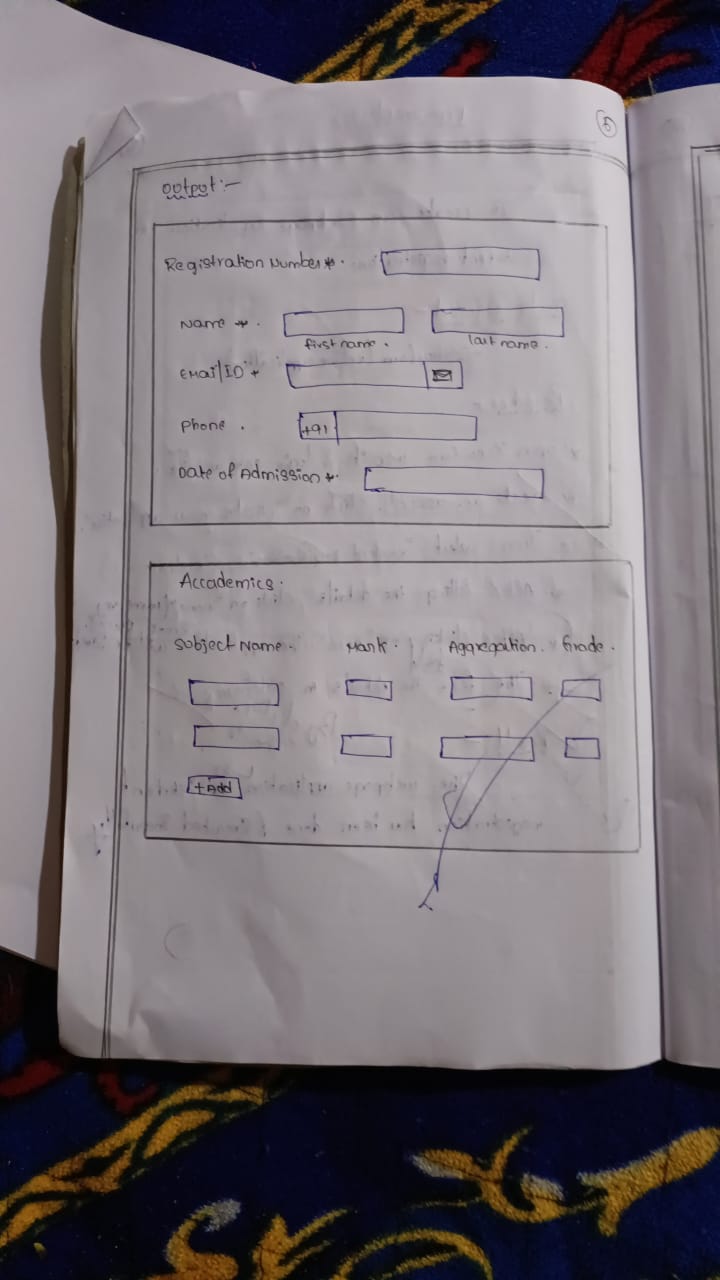 5
output:-
Registration Number *.
Name *.
first name.
last name.
EMail/ID *
Phone.
+91
Date of Admission *.
Accademics.
Subject Name. Mark. Aggregation. Grade.
+Add